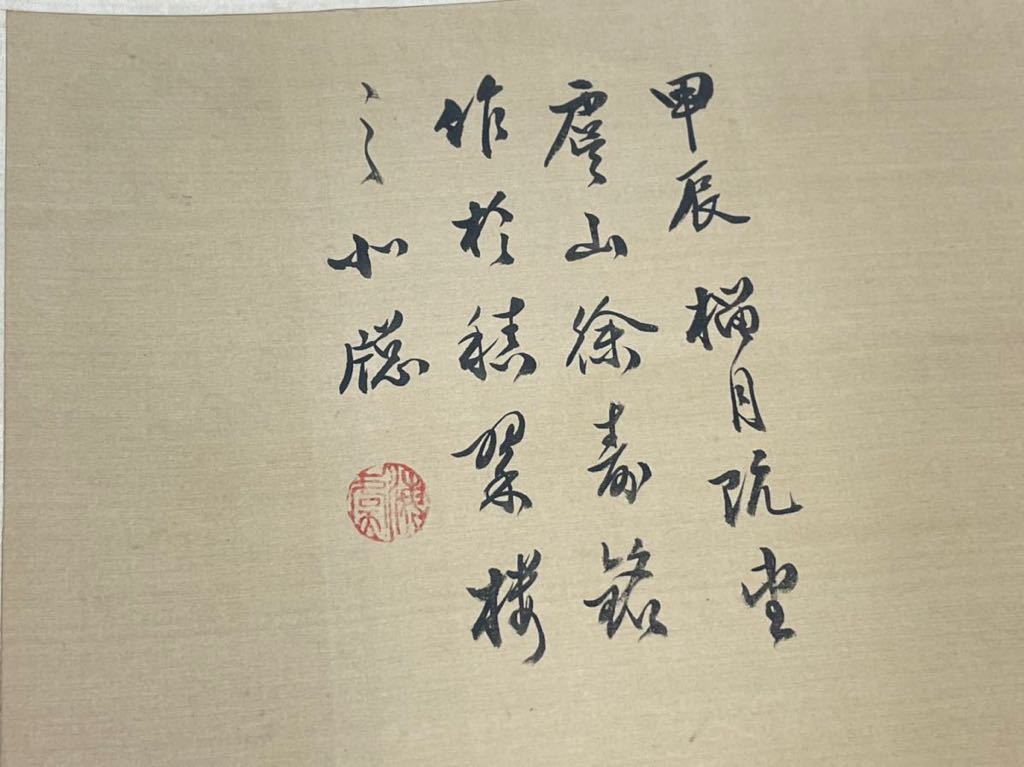 甲辰榴月既望
虞山徐壽銘
作於積翠樓
之北牕